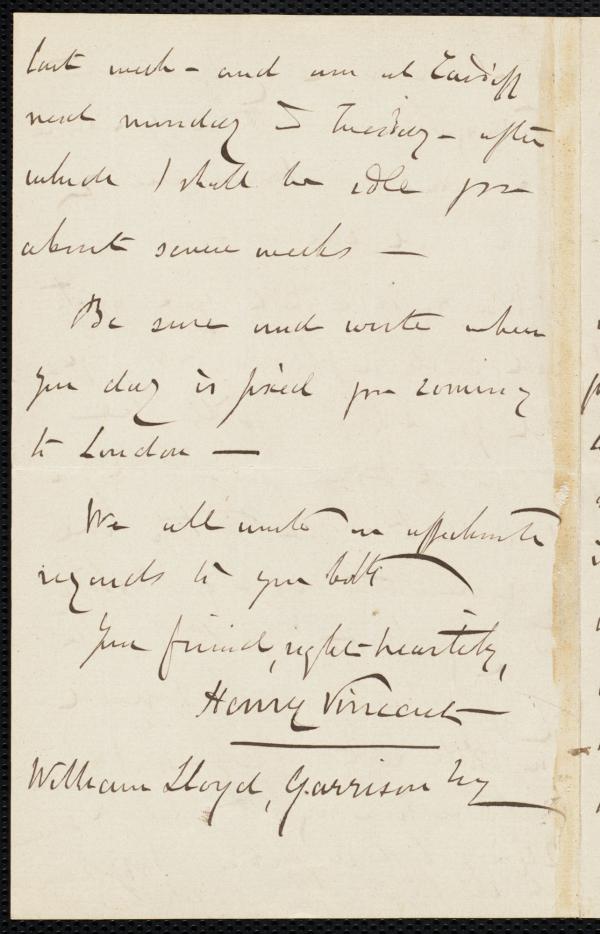 last week - and am at Cardiff
next monday & Tuesday - after
which I shall be idle for
about seven weeks -
Be sure and write when
your day is fixed for coming
to London -
We all unite in affectionate
regards to you both
Your friend, right-heartily,
Henry Vincent
William Lloyd, Garrison Esq